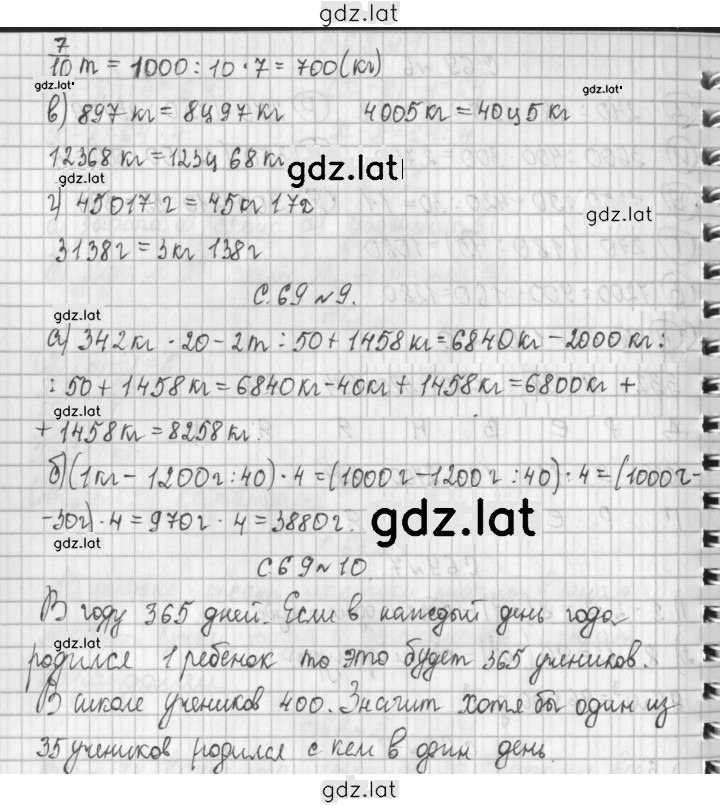 gdz.lat
7/10 т = 1000 : 10 · 7 = 700 (кг)
gdz.lat gdz.lat
в) 897 кг = 8ц 97 кг 4005 кг = 40ц 5 кг
12368 кг = 123ц 68 кг
gdz.lat gdz.lat
г) 45017 г = 45кг 17г
gdz.lat
3138 г = 3 кг 138 г
С. 69 №9.
gdz.lat
а) 342 кг · 20 - 2т : 50 + 1458 кг = 6840 кг - 2000 кг :
: 50 + 1458 кг = 6840 кг - 40 кг + 1458 кг = 6800 кг +
gdz.lat
+ 1458 кг = 8258 кг.
б) (1 кг - 1200 г : 40) · 4 = (1000 г - 1200 г : 40) · 4 = (1000 г -
- 30 г) · 4 = 970 г · 4 = 3880 г.
gdz.lat
gdz.lat
С. 69 №10
В году 365 дней. Если в каждый день года
gdz.lat
родился 1 ребенок то это будет 365 учеников.
В школе учеников 400. Значит хотя бы один из
35 учеников родился с кем в один день.
gdz.lat